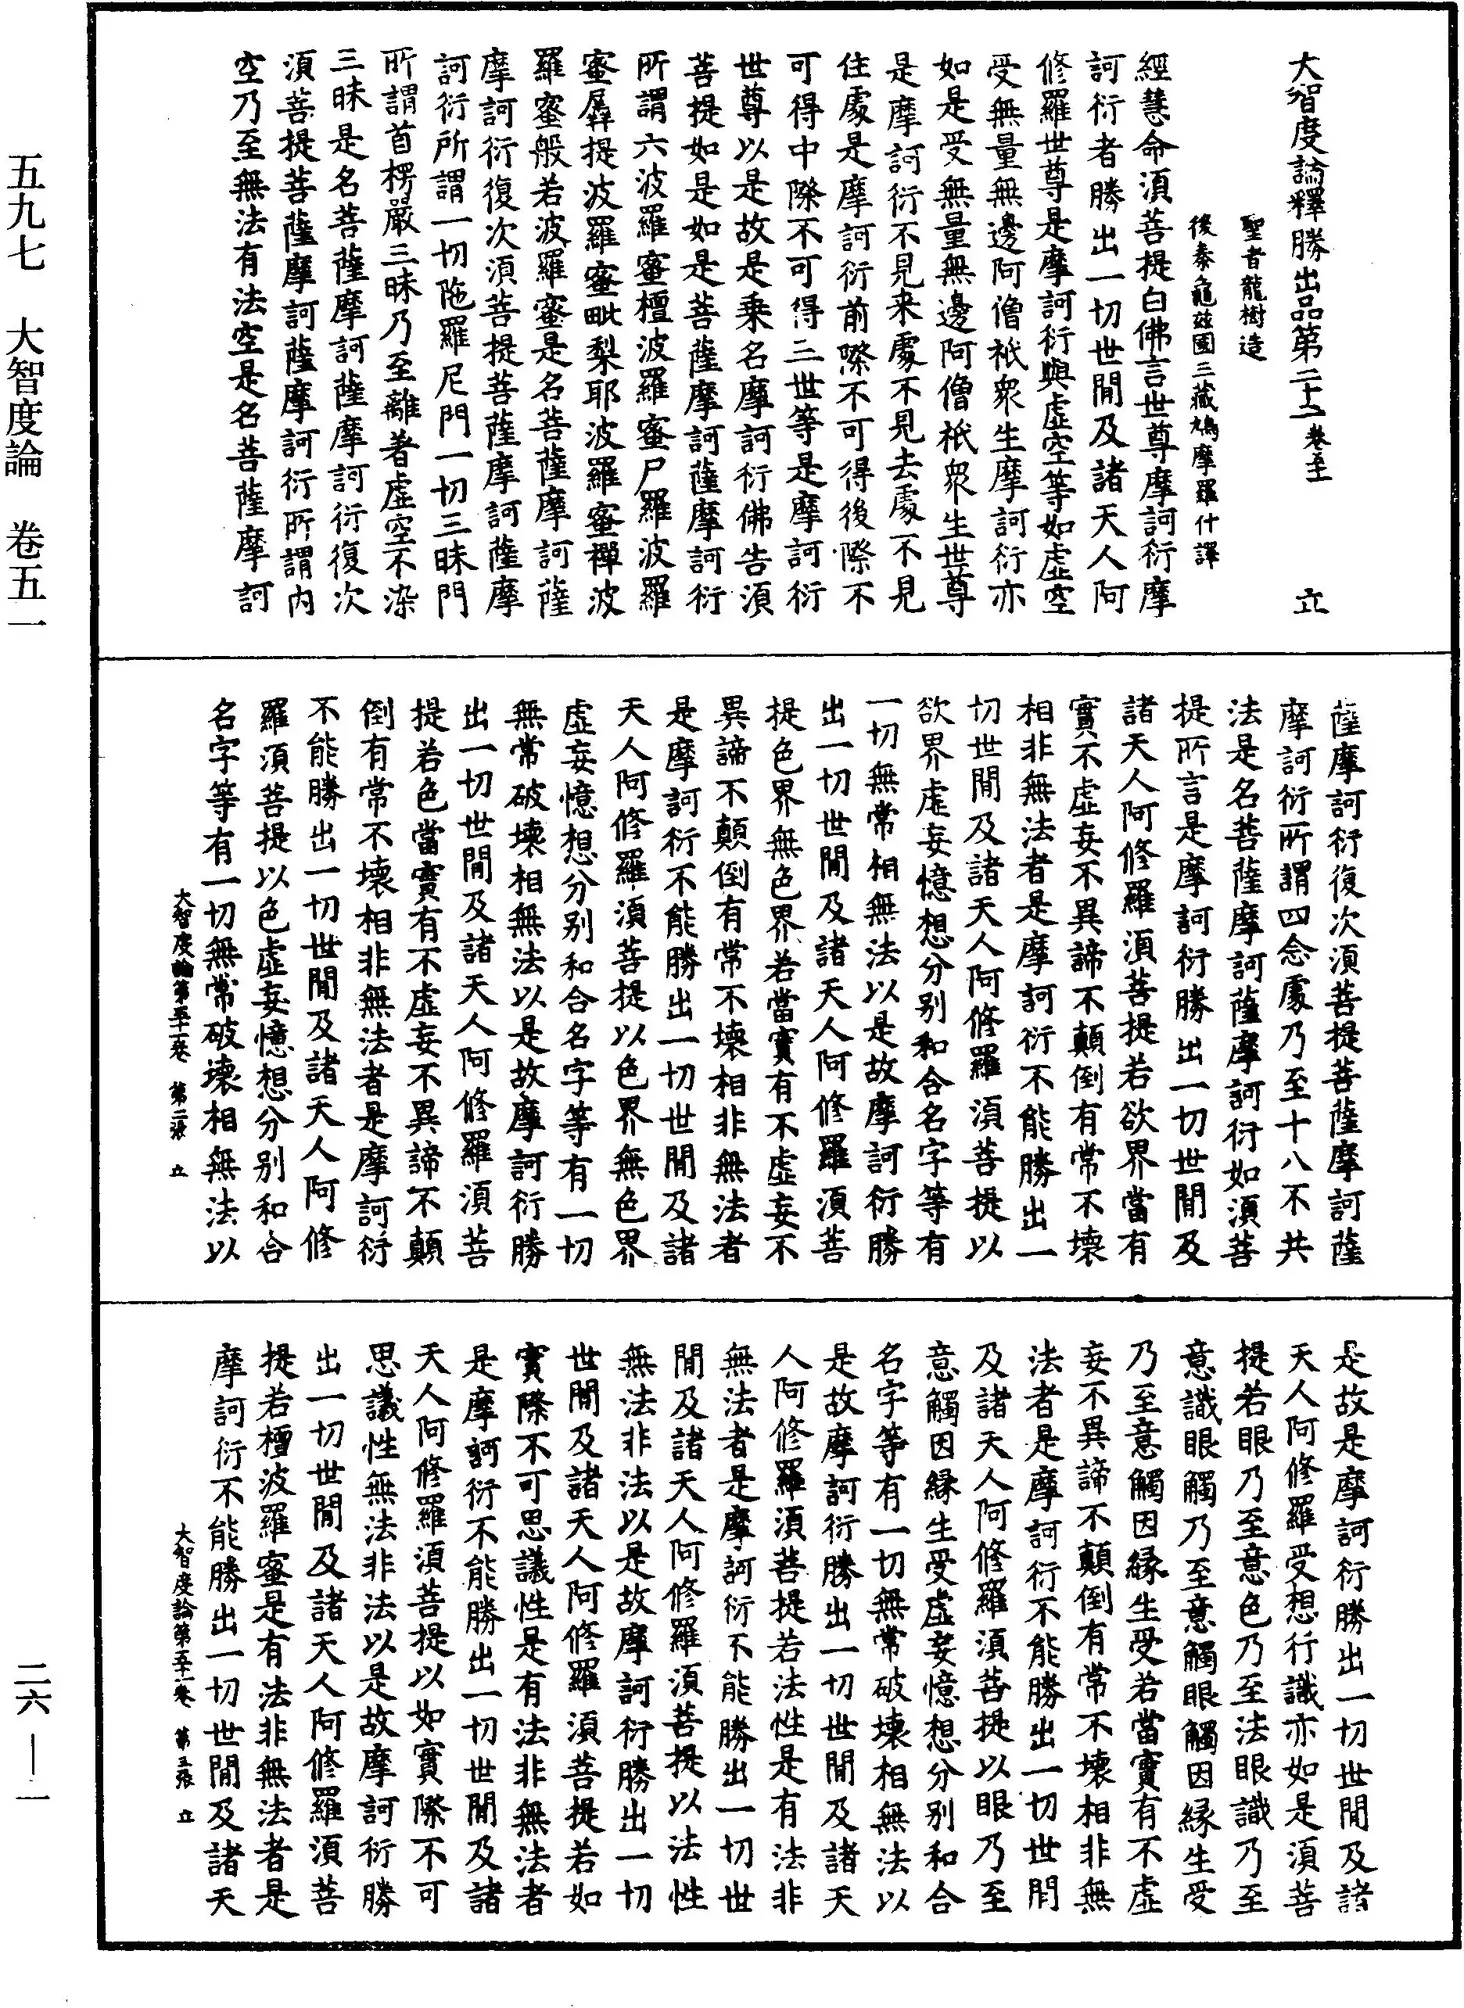 大智度論釋勝出品第二十二卷五十一 立
聖者龍樹造
後秦龜茲國三藏鳩摩羅什譯
經慧命須菩提白佛言世尊摩訶衍摩
訶衍者勝出一切世閒及諸天人阿
修羅世尊是摩訶衍與虛空等如虛空
受無量無邊阿僧祇衆生摩訶衍亦
如是受無量無邊阿僧祇衆生世尊
是摩訶衍不見来處不見去處不見
住處是摩訶衍前際不可得後際不
可得中際不可得三世等是摩訶衍
世尊以是故是乗名摩訶衍佛告須
菩提如是如是菩薩摩訶薩摩訶衍
所謂六波羅蜜檀波羅蜜尸羅波羅
蜜羼提波羅蜜毗梨耶波羅蜜禪波
羅蜜般若波羅蜜是名菩薩摩訶薩
摩訶衍復次須菩提菩薩摩訶薩摩
訶衍所謂一切陁羅尼門一切三昧門
所謂首楞嚴三昧乃至離著虛空不染
三昧是名菩薩摩訶薩摩訶衍復次
須菩提菩薩摩訶薩摩訶衍所謂內
空乃至無法有法空是名菩薩摩訶
薩摩訶衍復次須菩提菩薩摩訶薩
摩訶衍所謂四念處乃至十八不共
法是名菩薩摩訶薩摩訶衍如須菩
提所言是摩訶衍勝出一切世閒及
諸天人阿修羅須菩提若欲界當有
實不虛妄不異諦不顛倒有常不壞
相非無法者是摩訶衍不能勝出一
切世閒及諸天人阿修羅須菩提以
欲界虛妄憶想分別和合名字等有
一切無常相無法以是故摩訶衍勝
出一切世閒及諸天人阿修羅須菩
提色界無色界若當實有不虛妄不
異諦不顛倒有常不壞相非無法者
是摩訶衍不能勝出一切世閒及諸
天人阿修羅須菩提以色界無色界
虛妄憶想分別和合名字等有一切
無常破壞相無法以是故摩訶衍勝
出一切世閒及諸天人阿修羅須菩
提若色當實有不虛妄不異諦不顛
倒有常不壞相非無法者是摩訶衍
不能勝出一切世閒及諸天人阿修
羅須菩提以色虛妄憶想分別和合
名字等有一切無常破壞相無法以
大智度論第五十一卷 第二張 立
是故是摩訶衍勝出一切世閒及諸
天人阿修羅受想行識亦如是須菩
提若眼乃至意色乃至法眼識乃至
意識眼觸乃至意觸眼觸因緣生受
乃至意觸因緣生受若當實有不虛
妄不異諦不顛倒有常不壞相非無
法者是摩訶衍不能勝出一切世閒
及諸天人阿修羅須菩提以眼乃至
意觸因緣生受虛妄憶想分別和合
名字等有一切無常破壞相無法以
是故摩訶衍勝出一切世閒及諸天
人阿修羅須菩提若法性是有法非
無法者是摩訶衍不能勝出一切世
閒及諸天人阿修羅須菩提以法性
無法非法以是故摩訶衍勝出一切
世閒及諸天人阿修羅須菩提若如
實際不可思議性是有法非無法者
是摩訶衍不能勝出一切世閒及諸
天人阿修羅須菩提以如實際不可
思議性無法非法以是故摩訶衍勝
出一切世閒及諸天人阿修羅須菩
提若檀波羅蜜是有法非無法者是
摩訶衍不能勝出一切世閒及諸天
大智度論第五十一卷 第三張 立
五九七 大智度論 卷五一
二六—一